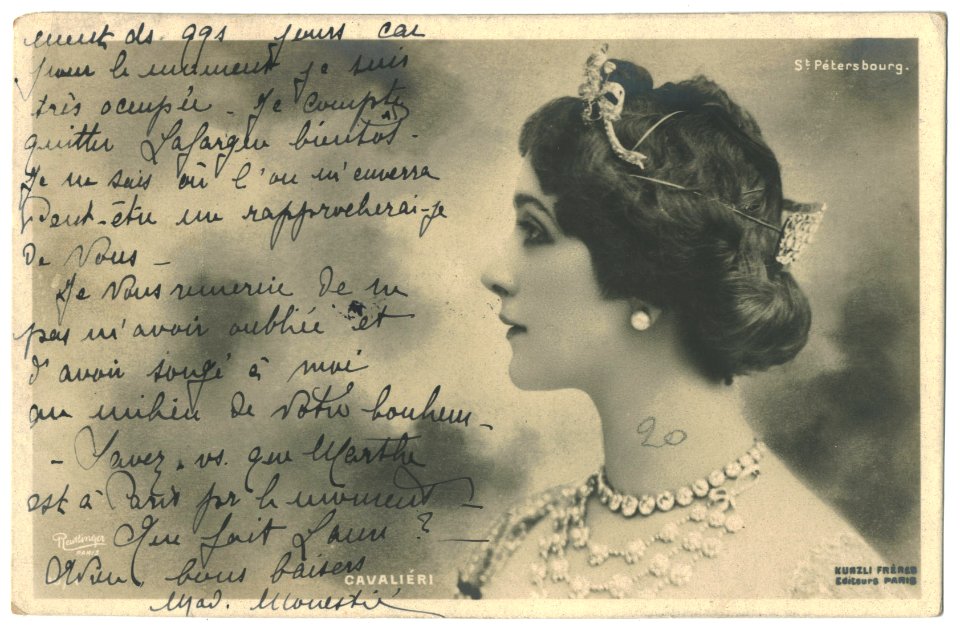 ment ds qqs jours car
pour le moment je suis
très occupée - Je compte
quitter Lafargue bientôt.
Je ne sais où l'on m'enverra
Peut-être me rapprocherai-je
de Vous -
Je Vous remercie de ne
pas m'avoir oubliée et
d'avoir songé à moi
au milieu de Votre bonheur -
- Savez vs. que Marthe
est à Paris pr le moment -
Que fait ?
Adieu, bons baisers
Mad.
St. Pétersbourg.
20
Reutlinger
PARIS
CAVALIÉRI
KUNZLI FRÈRES
Editeurs PARIS